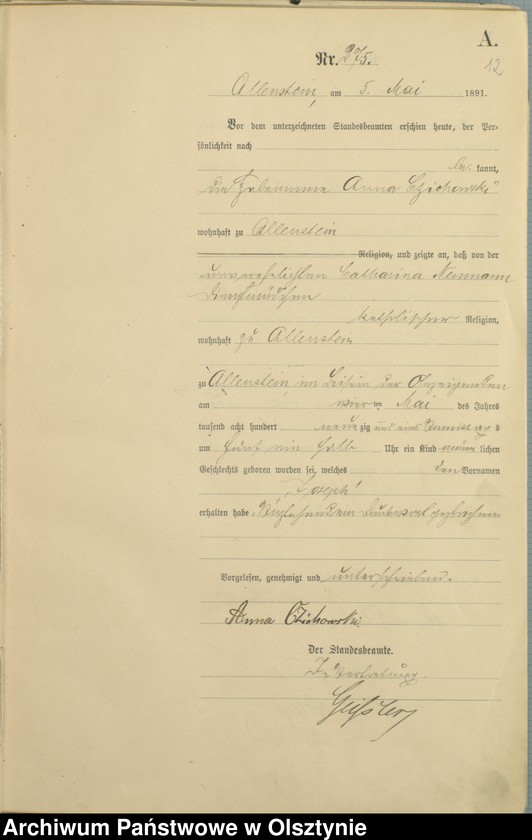 A.
12
Nr. 275.
Allenstein, am 5. Mai 1891.
Vor dem unterzeichneten Standesbeamten erschien heute, der Per-
sönlichkeit nach
be kannt,
die Hebeamme Anna Czichowski
wohnhaft zu Allenstein
Religion, und zeigte an, daß von der
unverehelichten Catharina Neumann
Dienstmädchen
katholischer Religion,
wohnhaft zu Allenstein
zu Allenstein im Beisein der Anzeigenden
am vier ten Mai des Jahres
tausend acht hundert neun zig und eins Vormittags
um fünf ein halb Uhr ein Kind männ lichen
Geschlechts geboren worden sei, welches den Vornamen
Joseph
erhalten habe.
Vorgelesen, genehmigt und unterschrieben.
Anna Czichowski.
Der Standesbeamte.
In Vertretung.
Archiwum Państwowe w Olsztynie